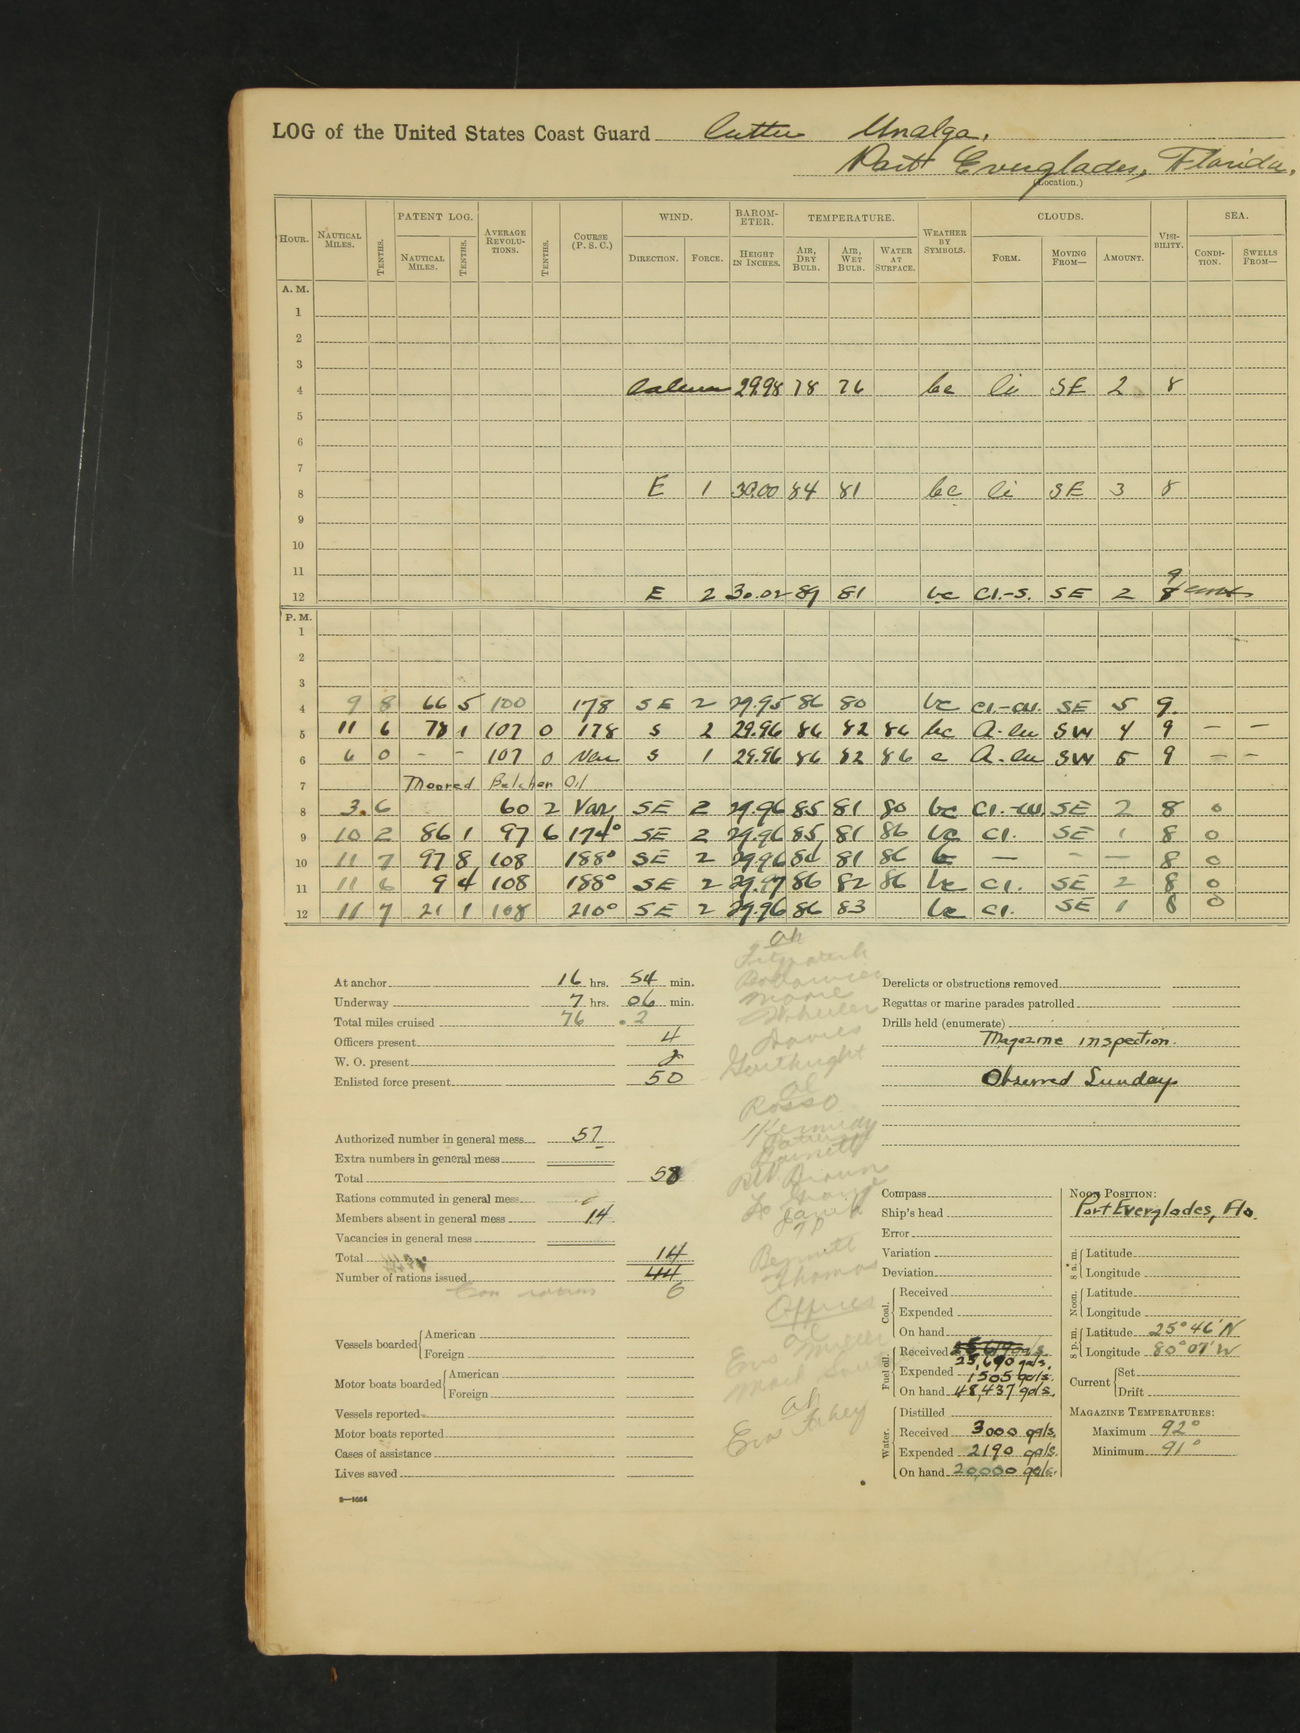 LOG of the United States Coast Guard Cutter Unalga.
Port Everglades, Florida.
(Location.)
HOUR. NAUTICAL MILES. TENTHS. PATENT LOG. NAUTICAL MILES. TENTHS. AVERAGE REVOLUTIONS. TENTHS. COURSE (P. S. C.) WIND. DIRECTION. FORCE. BAROMETER. HEIGHT IN INCHES. TEMPERATURE. AIR, DRY BULB. AIR, WET BULB. WATER AT SURFACE. WEATHER BY SYMBOLS. CLOUDS. FORM. MOVING FROM— AMOUNT. VISIBILITY. SEA. CONDITION. SWELLS FROM—
A. M.
1
2
3
4 Calm 29.98 78 76 bc Ci SE 2 8
5
6
7
8 E 1 30.00 84 81 bc Ci SE 3 8
9
10
11
12 E 2 30.02 89 81 bc CI.-S. SE 2 9
P. M.
1
2
3
4 9 8 66 5 100 178 SE 2 29.95 86 80 bc CI.-CU. SE 5 9.
5 11 6 78 1 107 0 178 S 2 29.96 86 82 86 bc A-Cu SW 4 9 — —
6 6 0 - - 107 0 Var S 1 29.96 86 82 86 c A-Cu SW 5 9 — —
7 Moored Belcher Oil
8 3. 6 60 2 Var. SE 2 29.96 85 81 80 bc CI.-CU. SE 2 8 0
9 10 2 86 1 97 6 174° SE 2 29.96 85 81 86 bc CI. SE 1 8 0
10 11 7 97 8 108 188° SE 2 29.96 86 81 86 b — - — 8 0
11 11 6 9 4 108 188° SE 2 29.97 86 82 86 bc CI. SE 2 8 0
12 11 7 21 1 108 210° SE 2 29.96 86 83 bc CI. SE 1 8 0
At anchor 16 hrs. 54 min.
Underway 7 hrs. 06 min.
Total miles cruised 76 . 2
Officers present 4
W. O. present 2
Enlisted force present 50
Authorized number in general mess 57
Extra numbers in general mess
Total 58
Rations commuted in general mess
Members absent in general mess 14
Vacancies in general mess
Total 14
Number of rations issued 44
6
Vessels boarded American
Foreign
Motor boats boarded American
Foreign
Vessels reported
Motor boats reported
Cases of assistance
Lives saved
2—1664
Wheeler
Davies
Rosso
Kennedy
Barnett
Brown
Bennett
Thomas
Officers
Derelicts or obstructions removed
Regattas or marine parades patrolled
Drills held (enumerate)
Magazine inspection.
Observed Sunday
Compass
Ship's head
Error
Variation
Deviation
Coal. Received
Expended
On hand
Fuel oil. Received 25,690 gals.
Expended 1505 gals.
On hand 48,437 gals.
Water. Distilled
Received 3000 gals.
Expended 2190 gals.
On hand 20,000 gals.
NOON POSITION:
Port Everglades, Fla.
8 a. m. Latitude
Longitude
Noon. Latitude
Longitude
8 p. m. Latitude 25° 46' N
Longitude 80° 07' W
Current Set
Drift
MAGAZINE TEMPERATURES:
Maximum 92°
Minimum 91°